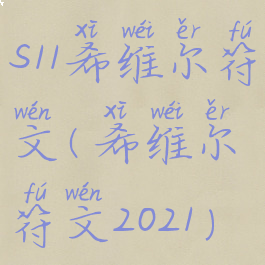 xī wéi ěr fú
S11希维尔符
wén xī wéi ěr
文(希维尔
fú wén
符文2021)